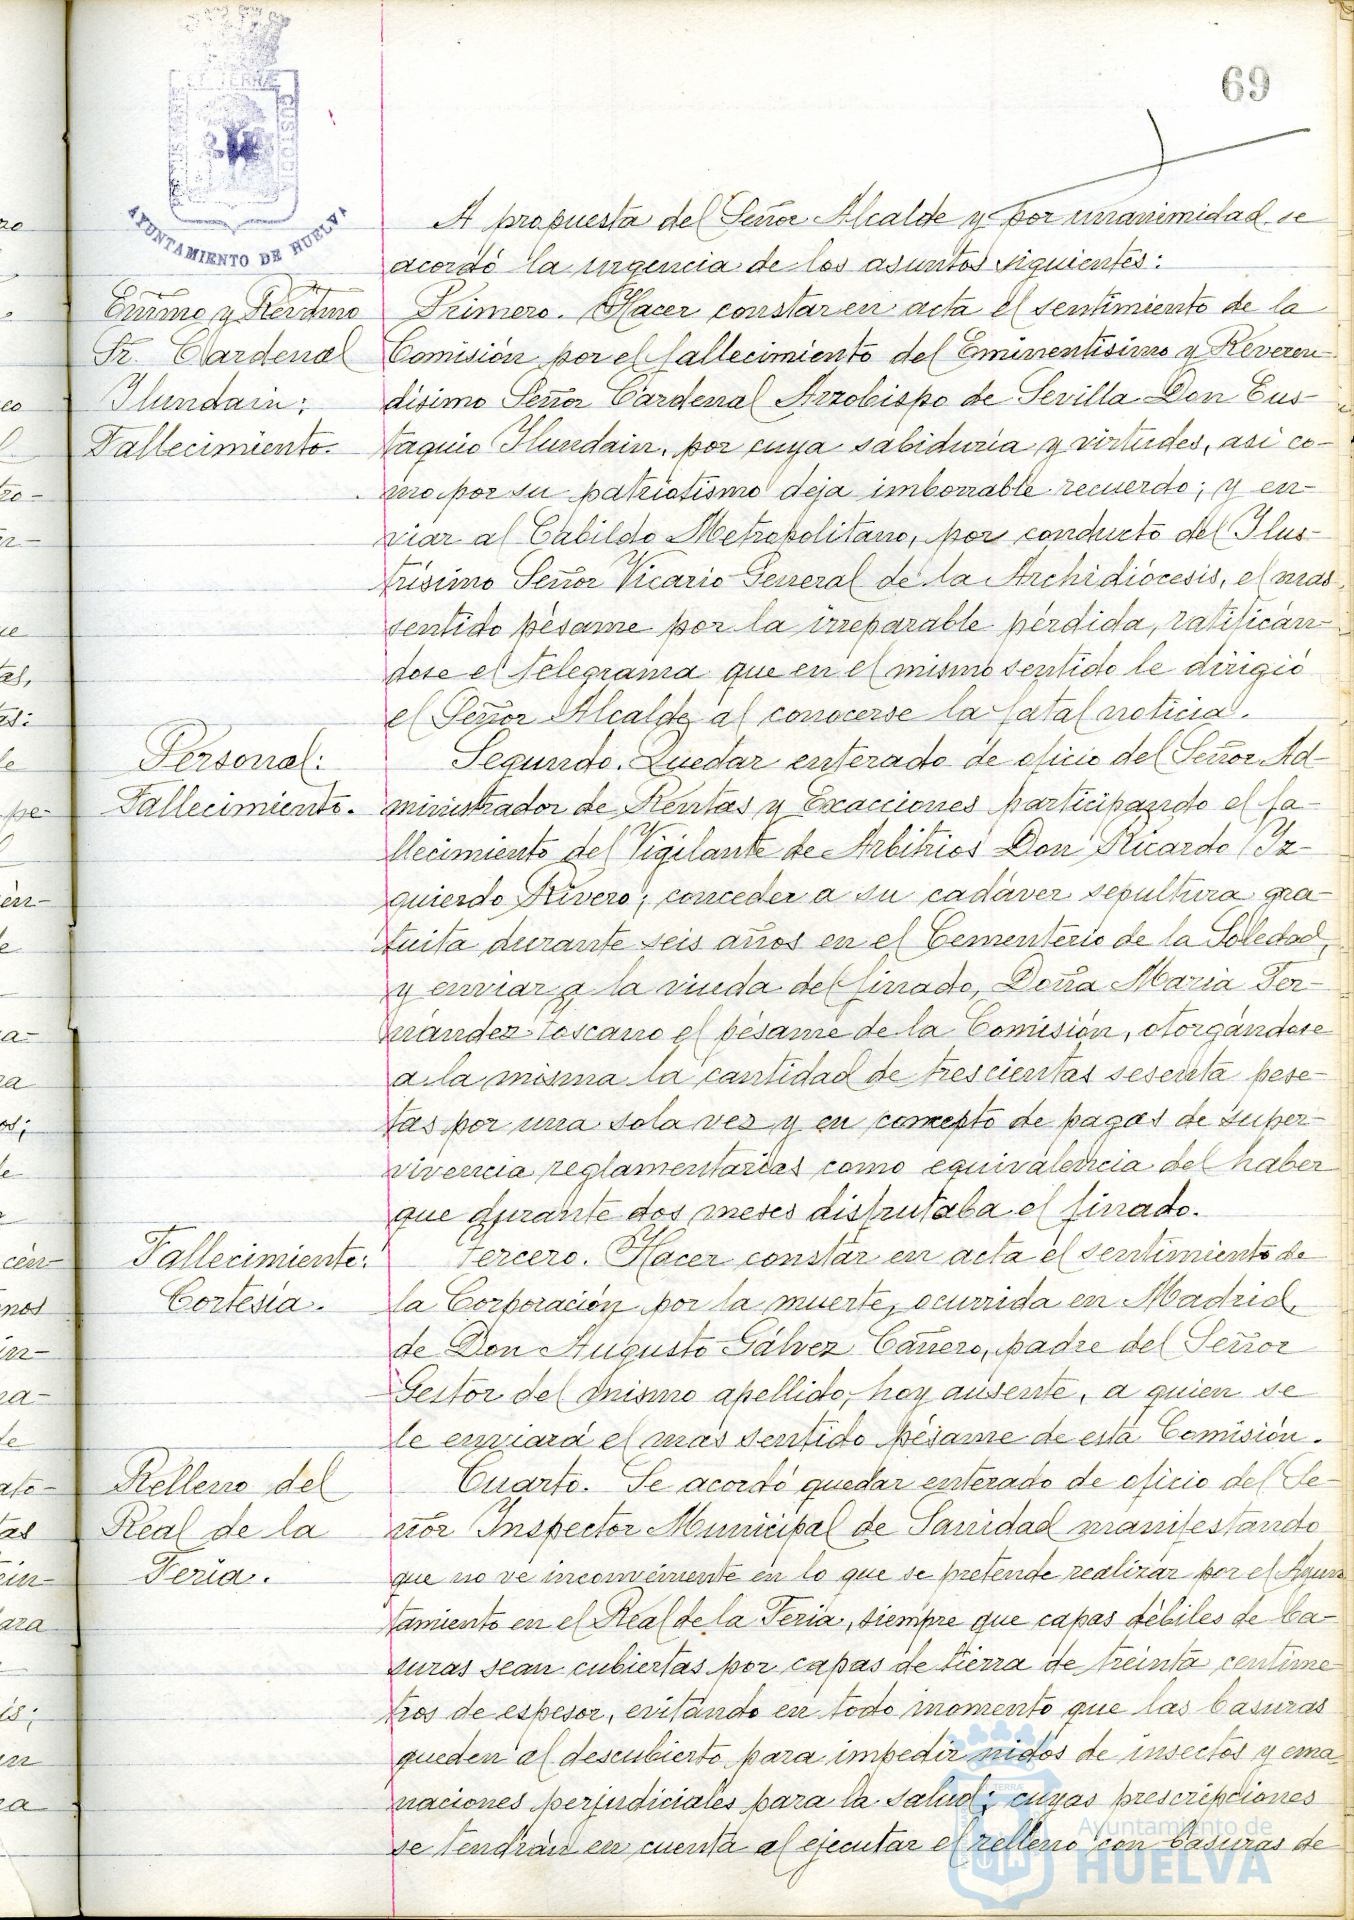 69
TERRÆ
CUSTODIA
AYUNTAMIENTO DE HUELVA
A propuesta del Señor Alcalde y por unanimidad se
acordó la urgencia de los asuntos siguientes:
Emmo y Revdmo
Sr. Cardenal
Ilundain:
Fallecimiento.
Primero. Hacer constar en acta el sentimiento de la
Comisión por el fallecimiento del Eminentisimo y Reveren-
disimo Señor Cardenal Arzobispo de Sevilla Don Eus-
taquio Ilundain, por cuya sabiduría y virtudes, asi co-
mo por su patriotismo deja imborrable recuerdo; y en-
viar al Cabildo Metropolitano, por conducto del Ilus-
trísimo Señor Vicario General de la Archidiócesis, el mas
sentido pésame por la irreparable pérdida, ratificán-
dose el telegrama que en el mismo sentido le dirigió
el Señor Alcalde al conocerse la fatal noticia.
Personal:
Fallecimiento.
Segundo. Quedar enterado de oficio del Señor Ad-
ministrador de Rentas y Exacciones participando el fa-
llecimiento del Vigilante de Arbitrios Don Ricardo Iz-
quierdo Rivero; conceder a su cadáver sepultura gra-
tuita durante seis años en el Cementerio de la Soledad,
y enviar a la viuda del finado, Doña Maria Fer-
nández Toscano el pésame de la Comisión, otorgándose
a la misma la cantidad de trescientas sesenta pese-
tas por una sola vez y en concepto de pagas de super-
vivencia reglamentarias como equivalencia del haber
que durante dos meses disfrutaba el finado.
Fallecimiento:
Cortesía.
Tercero. Hacer constar en acta el sentimiento de
la Corporación por la muerte, ocurrida en Madrid,
de Don Augusto Gálvez Cañero, padre del Señor
Gestor del mismo apellido, hoy ausente, a quien se
le enviará el mas sentido pésame de esta Comisión.
Relleno del
Real de la
Feria.
Cuarto. Se acordó quedar enterado de oficio del Se-
ñor Inspector Municipal de Sanidad manifestando
que no ve inconveniente en lo que se pretende realizar por el Ayun-
tamiento en el Real de la Feria, siempre que capas débiles de ba-
suras sean cubiertas por capas de tierra de treinta centime-
tros de espesor, evitando en todo momento que las basuras
queden al descubierto para impedir nidos de insectos y ema-
naciones perjudiciales para la salud; cuyas prescripciones
se tendrán en cuenta al ejecutar el relleno con basuras de
Ayuntamiento de
HUELVA